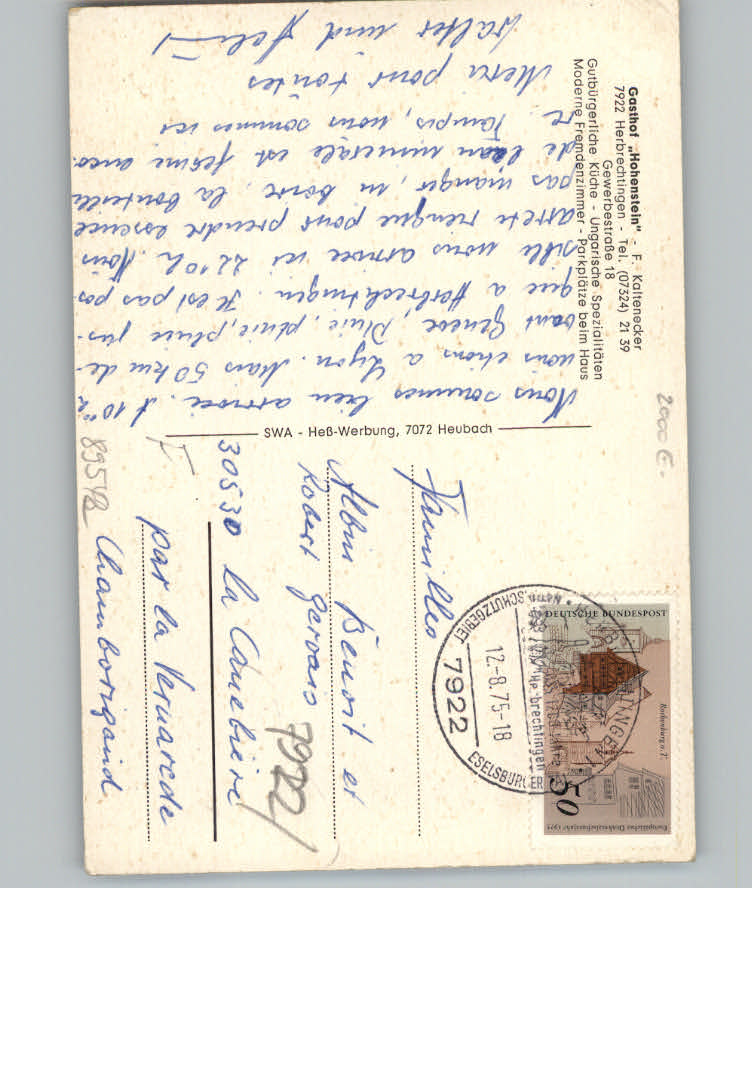 Gasthof „Hohenstein" - F. Kaltenecker
7922 Herbrechtingen - Tel. (07324) 21 39
Gewerbestraße 18
Gutbürgerliche Küche - Ungarische Spezialitäten
Moderne Fremdenzimmer - Parkplätze beim Haus
Nous sommes bien arrivé. A 10 h
nous etions a Lyon. Mais 50 km de-
vant Geneve, Pluie, pluie, pluie jus-
que a Herbrechtingen. Il est pas pos-
sible nous arrivee ici 22 10 h. Nous
arrete pour prendre essence
pas manger, ni boire, la bouteille
de l'eau minerale est ferme anco-
re. Tampis, nous sommes ici
Merci pour toutes
Walter und
SWA - Heß-Werbung, 7072 Heubach
2000 E.
Familles
Albus Benoit et
Robert Gervais
30530 La Canebiere
par la Vernarede
F
Chamborigaud
8954B
7922/
DEUTSCHE BUNDESPOST
Rothenburg o. T.
Europäisches Denkmalschutzjahr 1975
50
12.-8.75-18
7922
SCHUTZGEBIET
ESELSBURGER